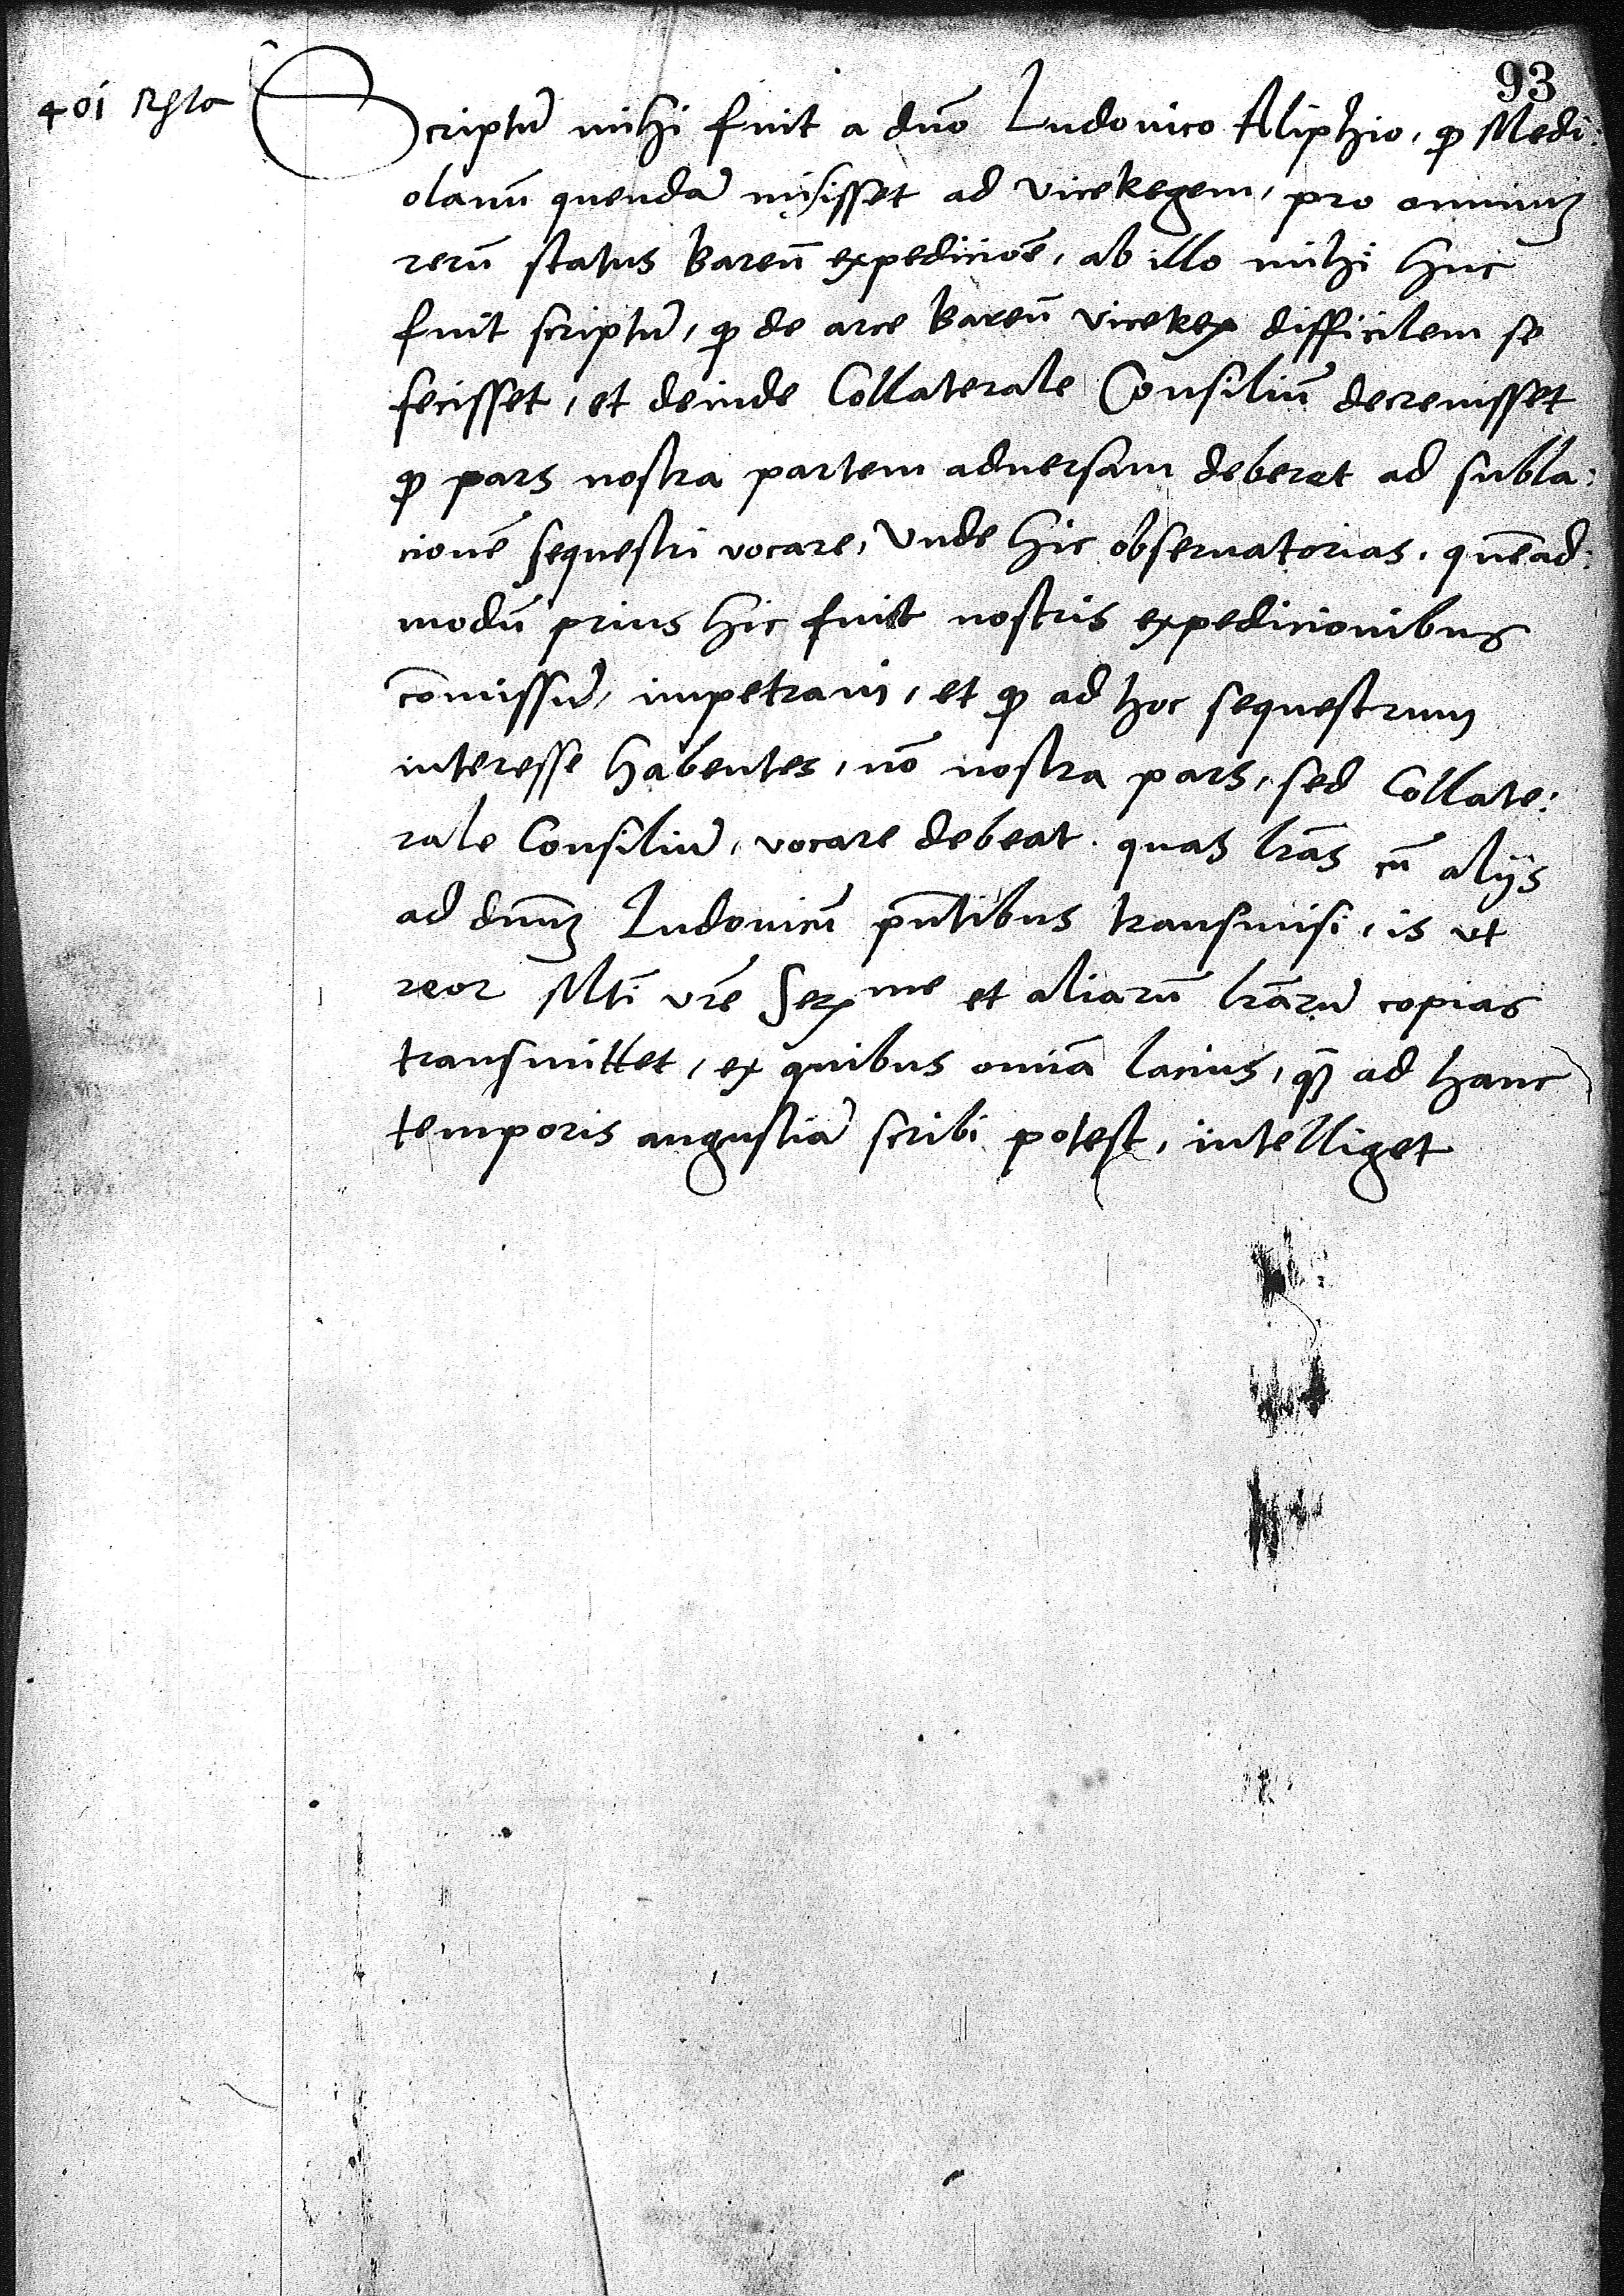 93
401
Scriptū mihi fuit a dnō Ludovico Aliphio, qȝ Medi:
olanū quendā misisset ad viceRegem, pro omniuȝ
rerū status Bareñ expedicioē, ab illo mihi huc
fuit scriptū, qȝ de arce Bareñ viceRex difficilem se
fecisset, et deinde Collaterale Consiliū decrevisset
qȝ pars nostra partem adversam deberet ad subla:
cionē sequestri vocare, Vnde hic observatorias, quēad:
modū prius hic fuit nostris expedicionibus
cōmissū, impetravi, et qȝ ad hoc sequestrum
interesse habentes, nō nostra pars, sed Collate:
rale Consiliū, vocare debeat. quas lrās cū alijs
ad dnūȝ Ludovicū pntībus transmisi, is vt
reor Mti vrē Serme et aliarū lrārū copias
transmittet, ex quibus omīa lacius, qȝ ad hanc
temporis angustiā scribi potest, intelliget